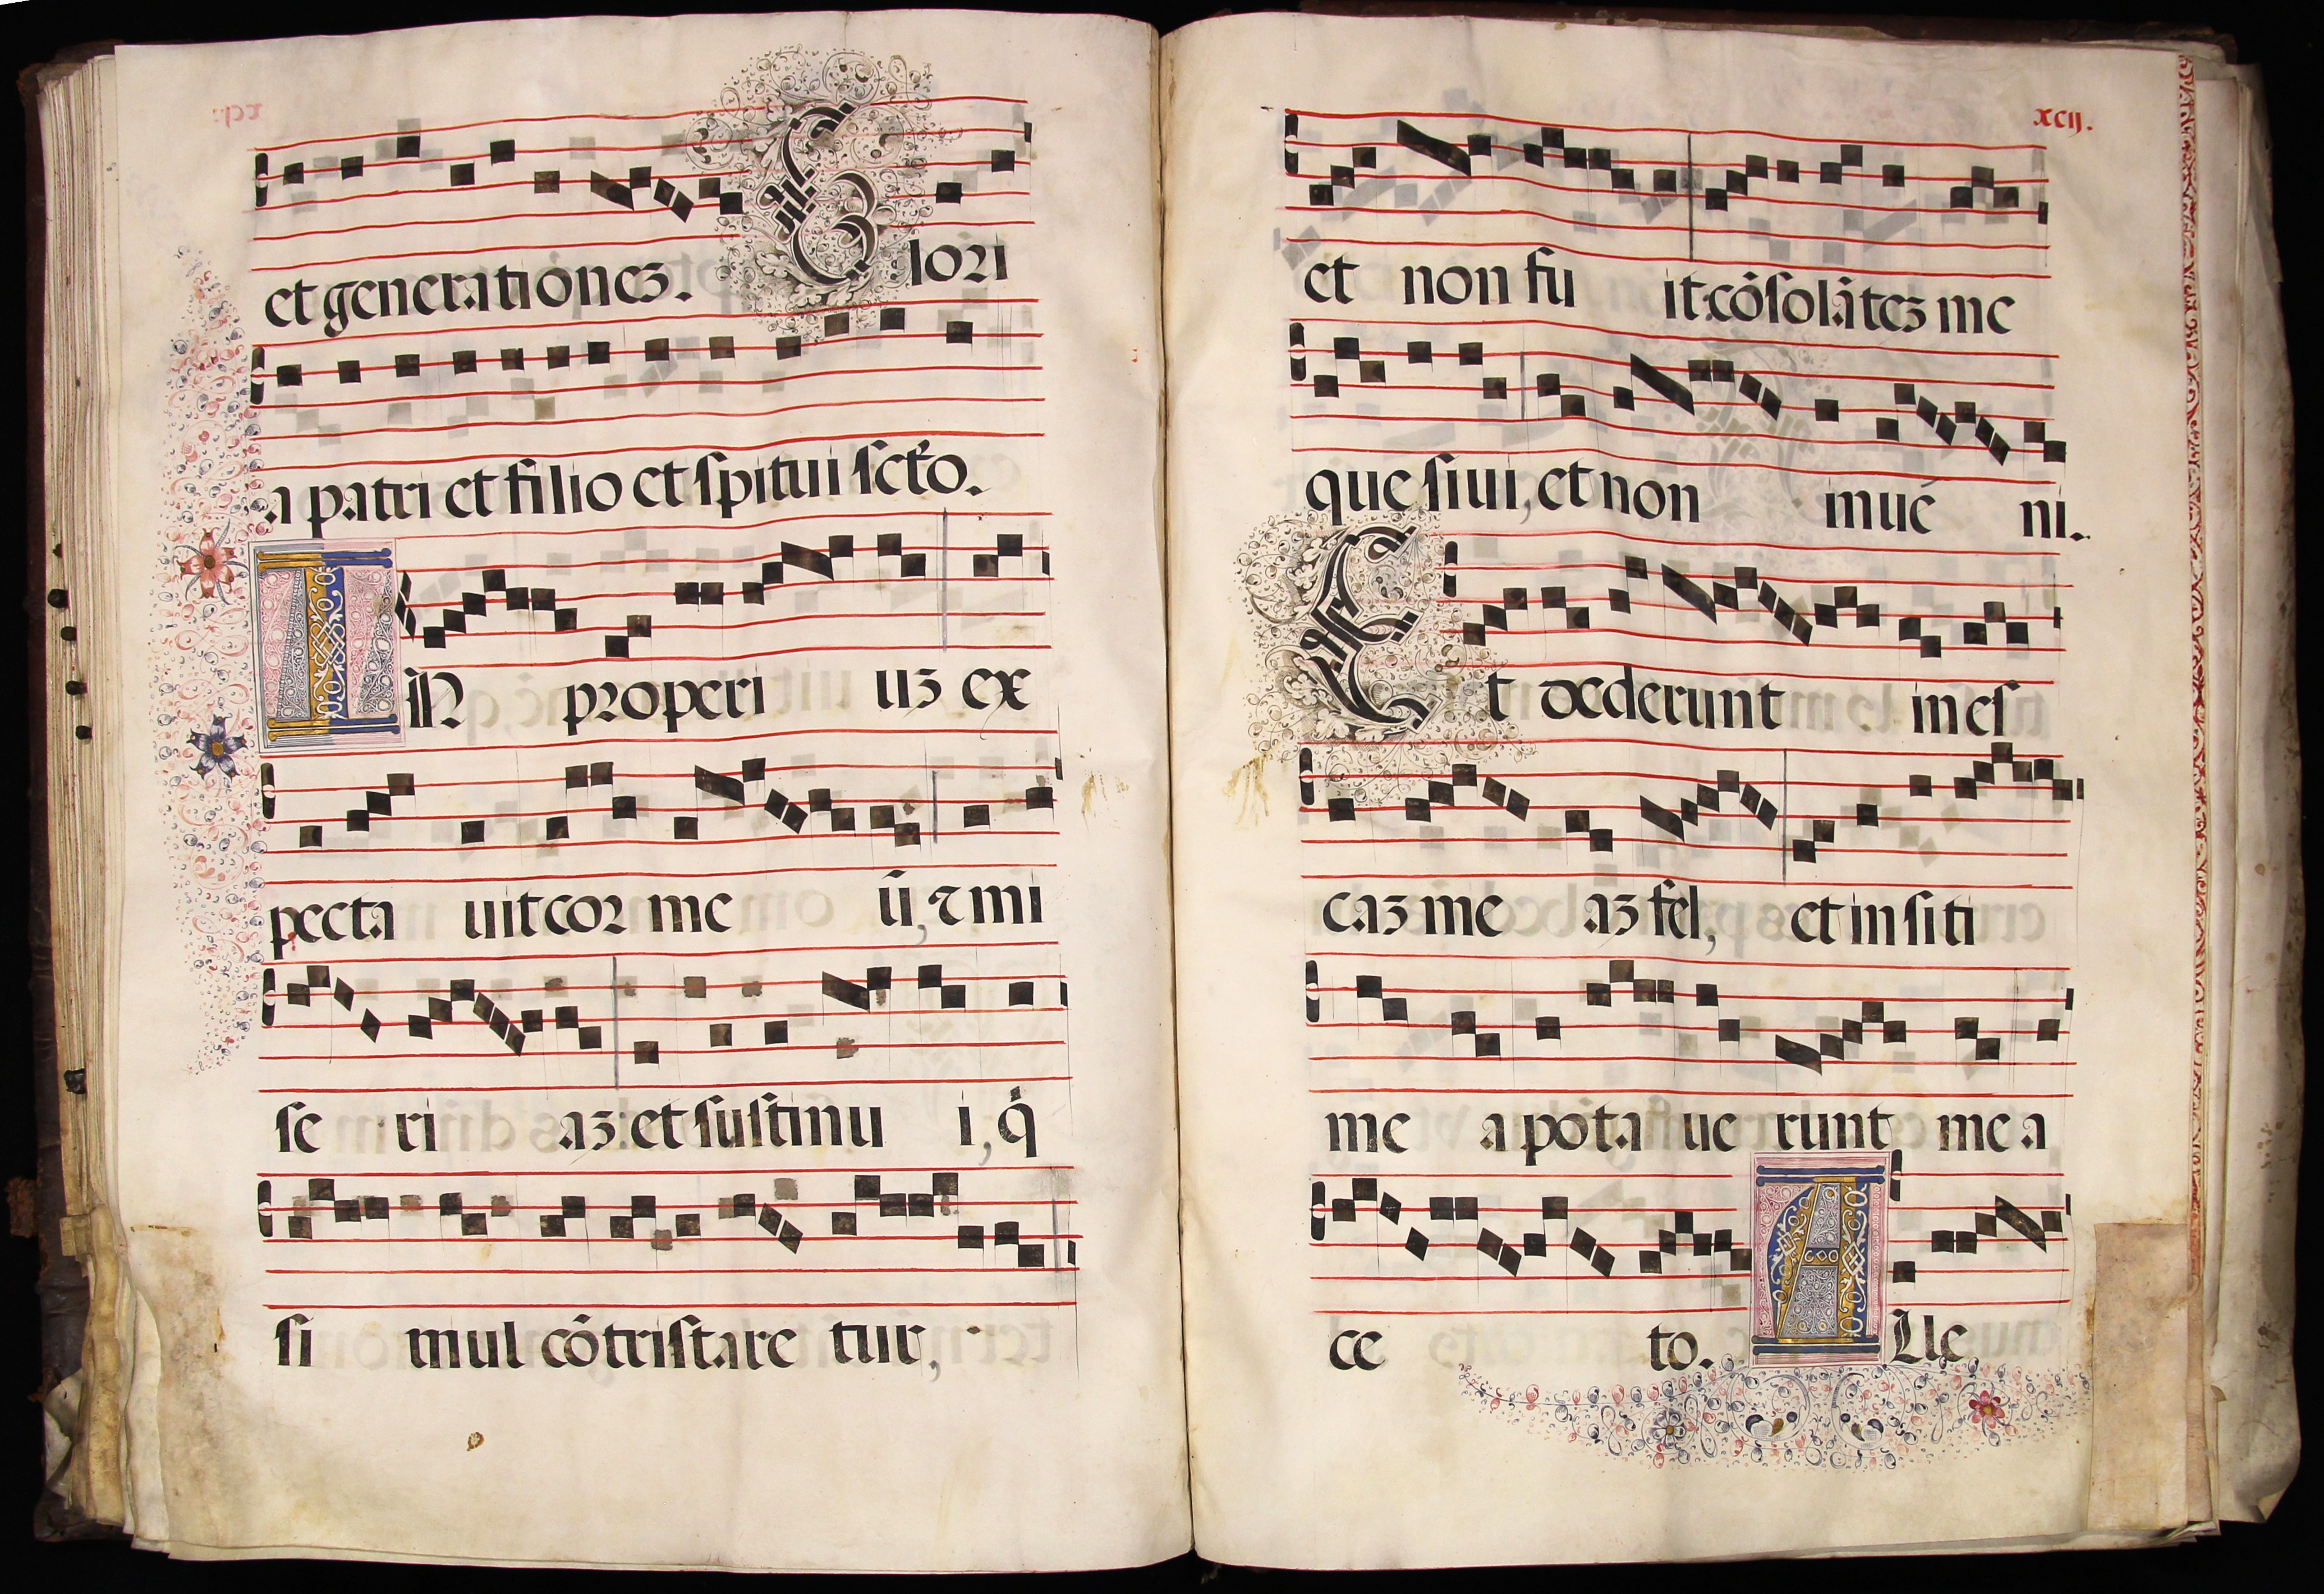 et generationeʒ. Glori
a patri et filio et spitui scto.
IN properi uʒ ex
pecta uit cor me ū, ꞇ mi
se ri aʒ: et sustinu i, q̇
si mul cōtristare tur,
xcij.
et non fu it cōsolāteʒ me
que siui, et non inue ni.
Et dederunt in es
caʒ me aʒ fel, et in siti
me a pota ue runt me a
ce to. AUe